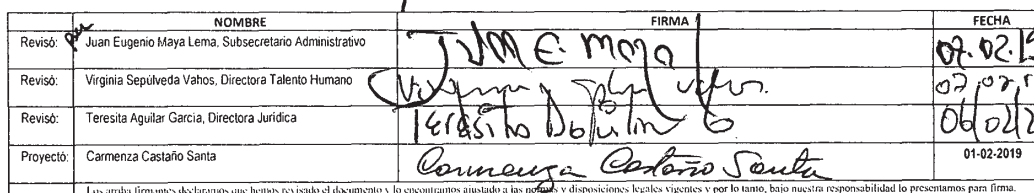 NOMBRE FIRMA FECHA
Revisó: Juan Eugenio Maya Lema, Subsecretario Administrativo Juan E. Maya L 07.02.19
Revisó: Virginia Sepúlveda Vahos, Directora Talento Humano Virginia Sepulveda Vahos. 07,02,1
Revisó: Teresita Aguilar Garcia, Directora Jurídica Teresita Aguilar G 06/02/2
Proyectó: Carmenza Castaño Santa Carmenza Castaño Santa 01-02-2019
Los arriba firmantes declaramos que hemos revisado el documento y lo encontramos ajustado a las normas y disposiciones legales vigentes y por lo tanto, bajo nuestra responsabilidad lo presentamos para firma.